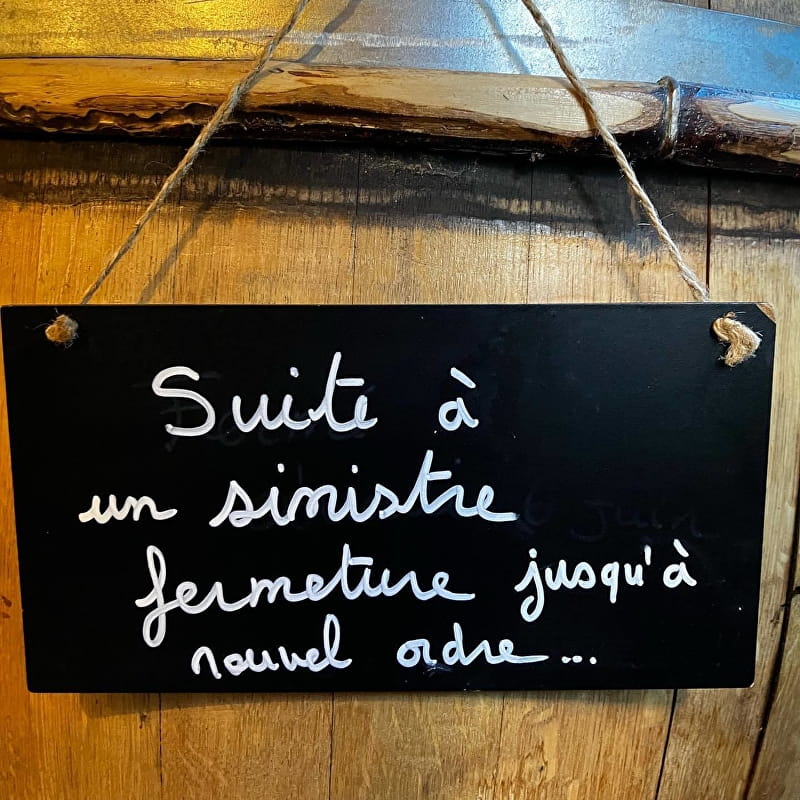 Suite à
un sinistre
fermeture jusqu'à
nouvel ordre...